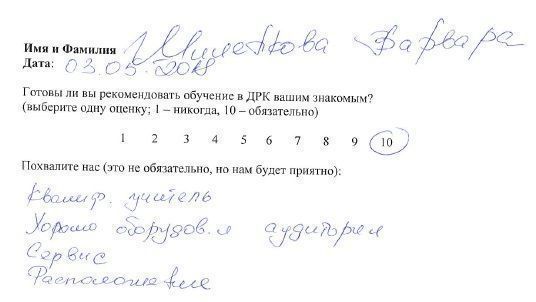 Имя и Фамилия Милюткова Варвара
Дата: 03.05.2018
Готовы ли вы рекомендовать обучение в ДРК вашим знакомым?
(выберите одну оценку; 1 – никогда, 10 – обязательно)
1 2 3 4 5 6 7 8 9 10
Похвалите нас (это не обязательно, но нам будет приятно):
Квалиф. учитель
Хорошо оборудов.я аудитория
Сервис
Расположение